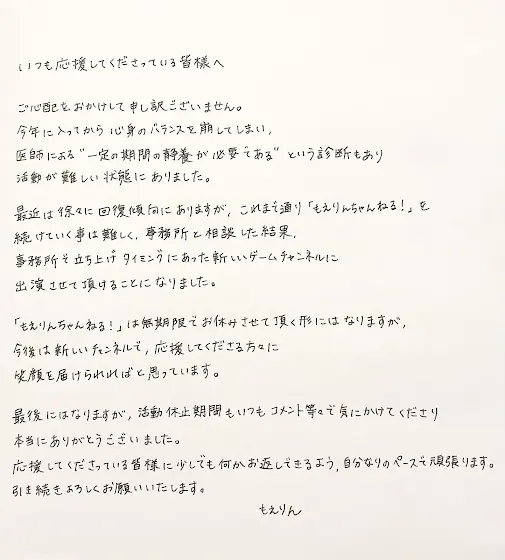 いつも応援してくださっている皆様へ
ご心配をおかけして申し訳ございません。
今年に入ってから心身のバランスを崩してしまい、
医師による"一定の期間の静養が必要である"という診断もあり
活動が難しい状態にありました。
最近は徐々に回復傾向にありますが、これまで通り「もえりんちゃんねる!」を
続けていく事は難しく、事務所と相談した結果、
事務所で立ち上げタイミングにあった新しいゲームチャンネルに
出演させて頂けることになりました。
「もえりんちゃんねる!」は無期限でお休みさせて頂く形にはなりますが、
今後は新しいチャンネルで、応援してくださる方々に
笑顔を届けられればと思っています。
最後にはなりますが、活動休止期間もいつもコメント等々で気にかけてくださり
本当にありがとうございました。
応援してくださっている皆様に少しでも何かお返しできるよう、自分なりのペースで頑張ります。
引き続きよろしくお願いいたします。
もえりん